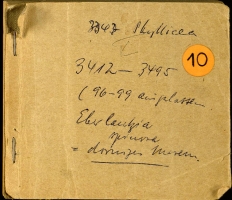 3343 Phyllica
10
3412 – 3495
(96-99 ausgelassen
Eberlanzia
spinosa
= dorniges Mesem.